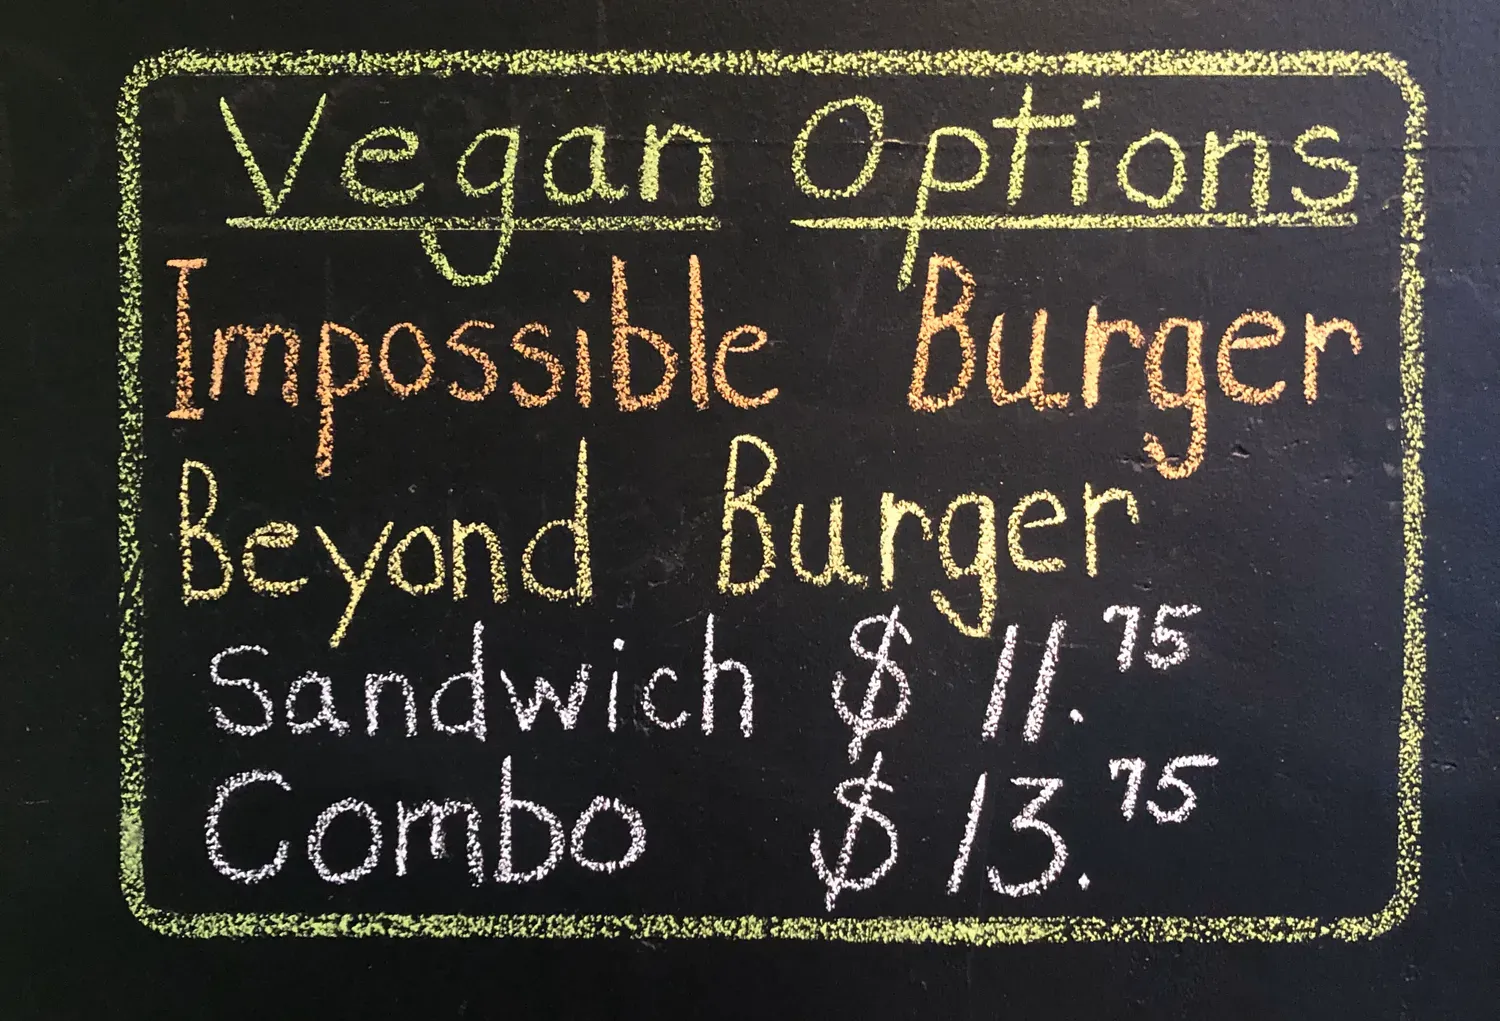 Vegan Options
Impossible Burger
Beyond Burger
Sandwich $ 11.75
Combo $ 13.75